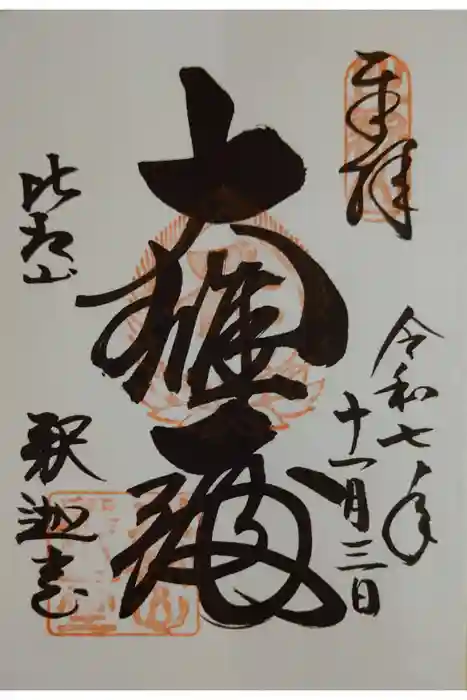 奉拝
令和七年
十一月三日
大雄
比叡山
釈迦堂